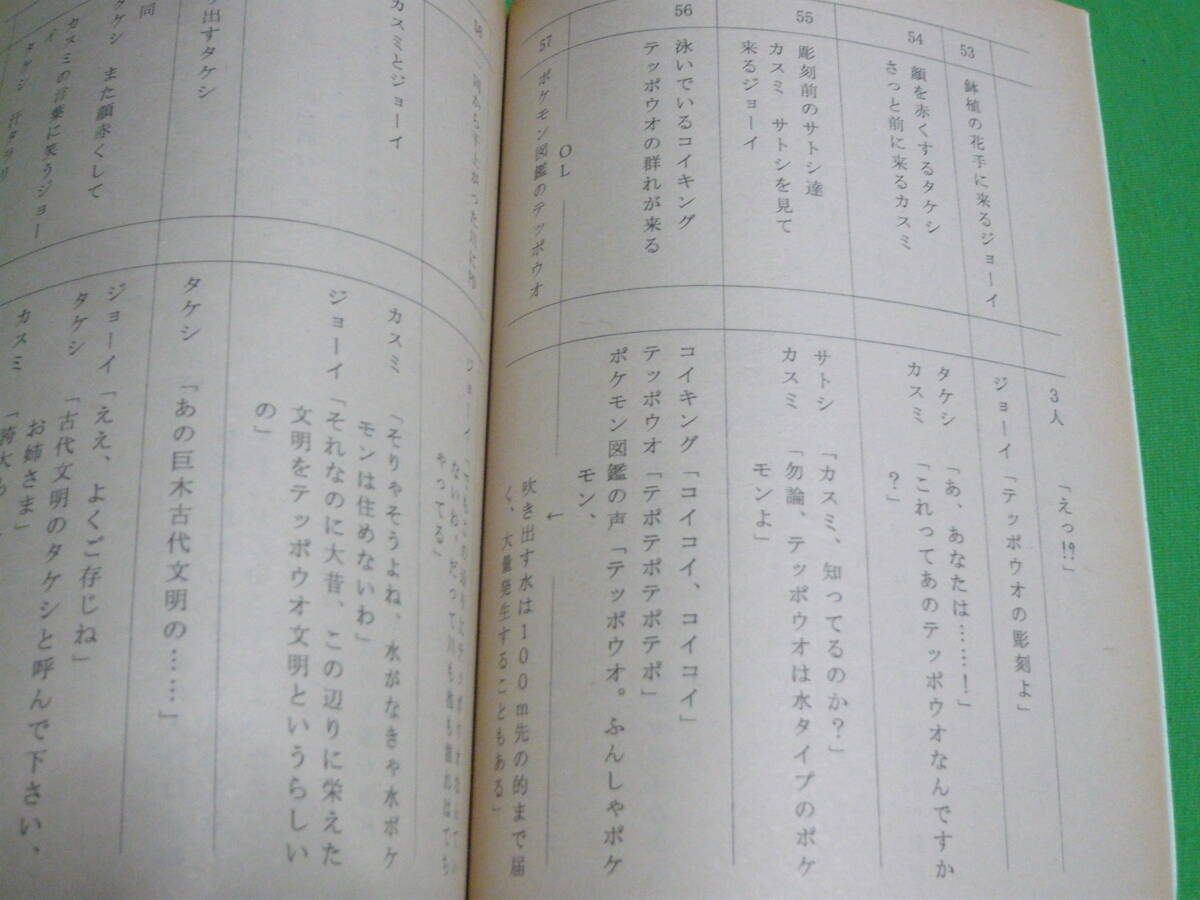 3人
「えっ!?」
53
鉢植の花手に来るジョーイ
ジョーイ「テッポウオの彫刻よ」
54
顔を赤くするタケシ
さっと前に来るカスミ
タケシ「あ、あなたは……!」
カスミ「これってあのテッポウオなんですか
?」
55
彫刻前のサトシ達
カスミ サトシを見て
来るジョーイ
サトシ「カスミ、知ってるのか?」
カスミ「勿論、テッポウオは水タイプのポケ
モンよ」
56
泳いでいるコイキング
テッポウオの群れが来る
コイキング「コイコイ、コイコイ」
テッポウオ「テポテポテポテポ」
ポケモン図鑑の声「テッポウオ。ふんしゃポケ
モン、
OL
←
57
ポケモン図鑑のテッポウオ
吹き出す水は100m先の的まで届
く、大量発生することもある」
58
ジョーイ
ないわ。だって川も池も
やってる」
カスミとジョーイ
カスミ「そりゃそうよね、水がなきゃ水ポケ
モンは住めないわ」
ジョーイ「それなのに大昔、この辺りに栄えた
文明をテッポウオ文明というらしい
の」
り出すタケシ
タケシ「あの巨木古代文明の……」
同
タケシ また顔赤くして
カスミの言葉に笑うジョー
イ
タケシ 汗タラリ
ジョーイ「ええ、よくご存じね」
タケシ「古代文明のタケシと呼んで下さい、
お姉さま」
カスミ